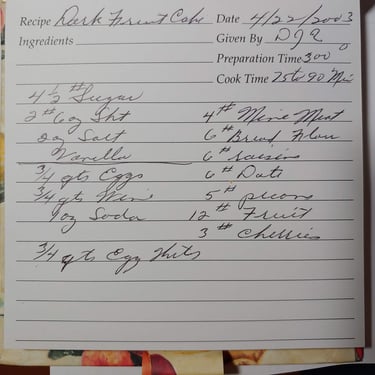 Recipe Dark Fruit Cake Date 4/22/2003
Ingredients Given By DJQ
Preparation Time 300°
Cook Time 75 to 90 Min
4 1/2 # Sugar
2 # 6 oz Sht 4 # Mine Meat
2oz Salt 6 # Bread Flou
Vanilla 6 # raisins
3/4 qts Eggs 6 # Dats
3/4 qts Wine 5 # pecans
1oz Soda 12 # Fruit
3 # Cherries
3/4 qts Egg Whits